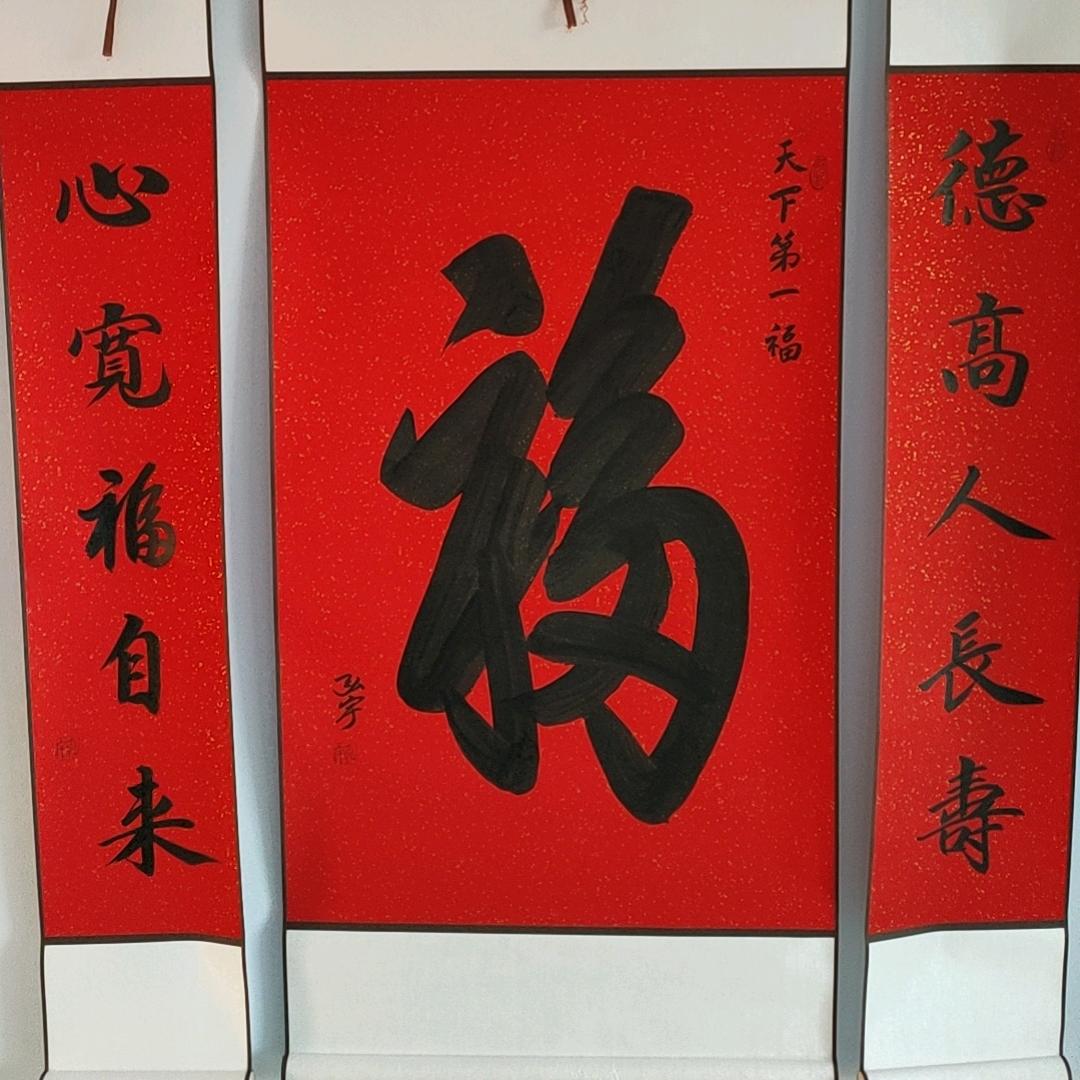 德高人長壽
天下第一福
福
弘宇
心寬福自来